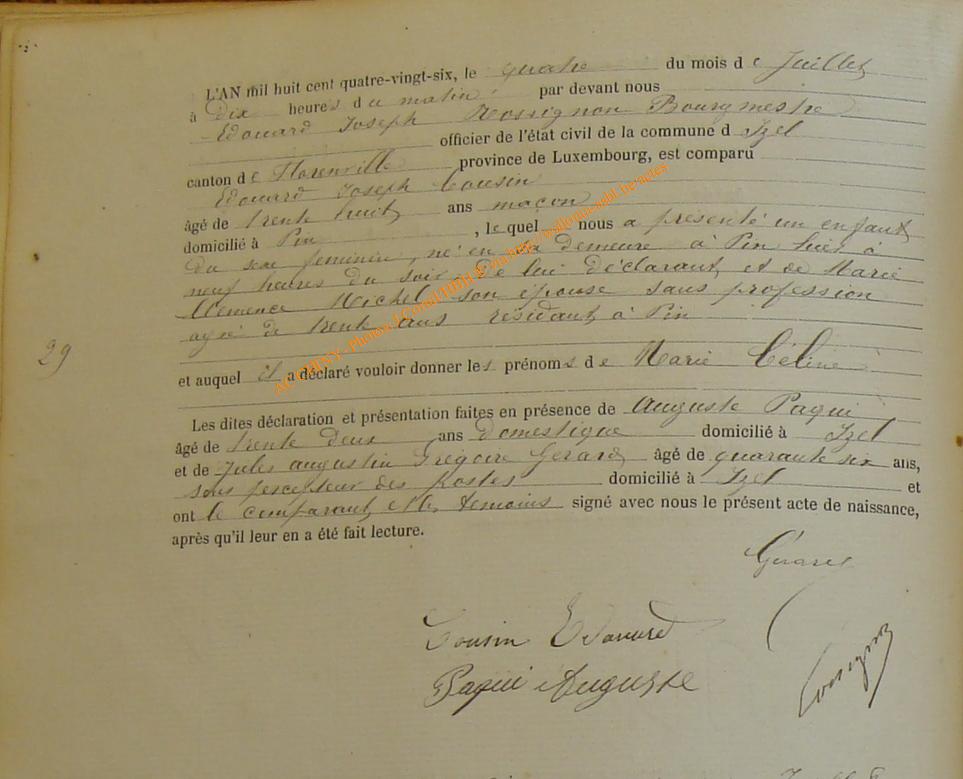 L'AN mil huit cent quatre-vingt-six, le quatre du mois de Juillet
à Dix heures du matin, par devant nous
Edouard Joseph Rossignon Bourgmestre
officier de l'état civil de la commune d Izel
canton de Florenville province de Luxembourg, est comparu
Edouard Joseph Cousin
âgé de trente huit ans maçon
domicilié à Pin, lequel nous a présenté un enfant
du sexe feminin, né en sa demeure à Pin hier à
neuf heures du soir, de lui déclarant, et de Marie
Clémence Michel son épouse sans profession
agée de trente ans résidant à Pin
29
et auquel il a déclaré vouloir donner les prénoms de Marie Céline
Les dites déclaration et présentation faites en présence de Auguste Paqui
âgé de trente deux ans domestique domicilié à Izel
et de Jules Augustin Grégoire Gerard âgé de quarante six ans,
sous percepteur des postes domicilié à Izel et
ont le comparant et les temoins signé avec nous le présent acte de naissance,
après qu'il leur en a été fait lecture.
Gerard
Cousin Edouard
Paqui Auguste
Rossignon